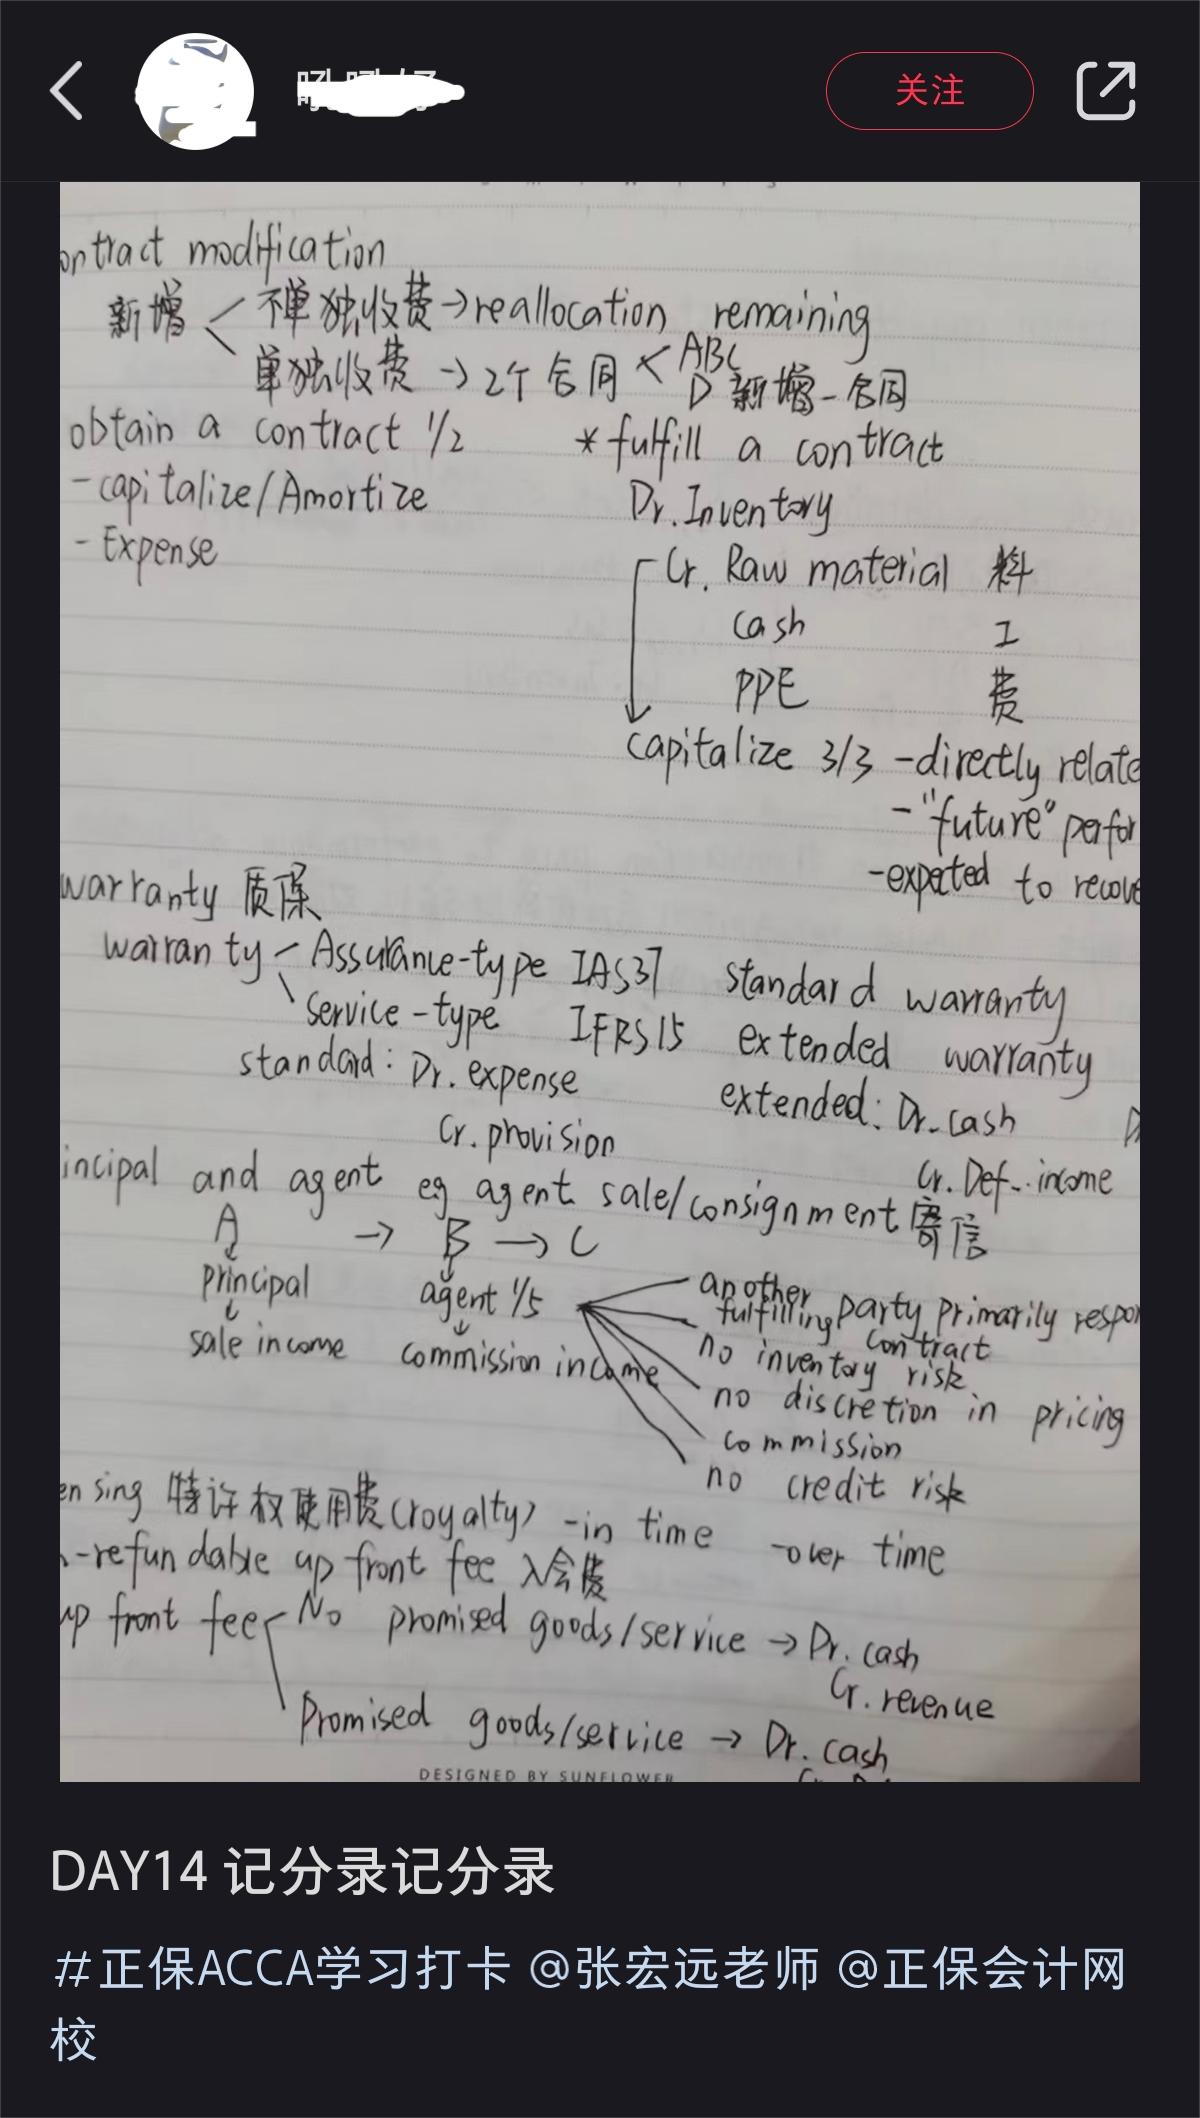 关注
ontract modification
新增 不单独收费→reallocation remaining
单独收费→2个合同 < ABC
D 新增一合同
obtain a contract 1/2 *fulfill a contract
-capitalize/Amortize Dr. Inventory
- Expense
Cr. Raw material 料
cash 工
PPE 费
capitalize 3/3 -directly relate
-"future" perfor
-expected to recove
warranty 质保
warranty Assurance-type IAS37 standard warranty
service-type IFRS15 extended warranty
standard: Dr. expense extended: Dr. cash
Cr. provision Cr. Def. income
incipal and agent eg agent sale/consignment 寄信
A → B → C
principal agent 1/5 another party primarily respon
fulfilling contract
sale income commission income no inventory risk
no discretion in pricing
commission
no credit risk
ensing 特许权使用费(royalty) -in time -over time
-refundable up front fee 入会费
up front fee No promised goods/service → Dr. cash
Cr. revenue
Promised goods/service → Dr. cash
DESIGNED BY SUNFLOWER
DAY14 记分录记分录
#正保ACCA学习打卡 @张宏远老师 @正保会计网
校